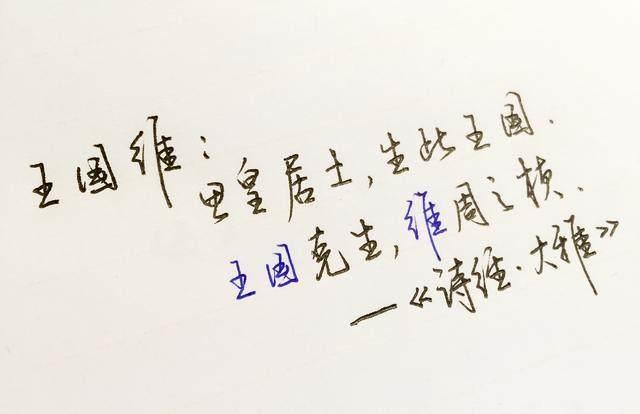 王国维：
思皇居士，生此王国.
王国克生，维周之桢.
—《诗经·大雅》